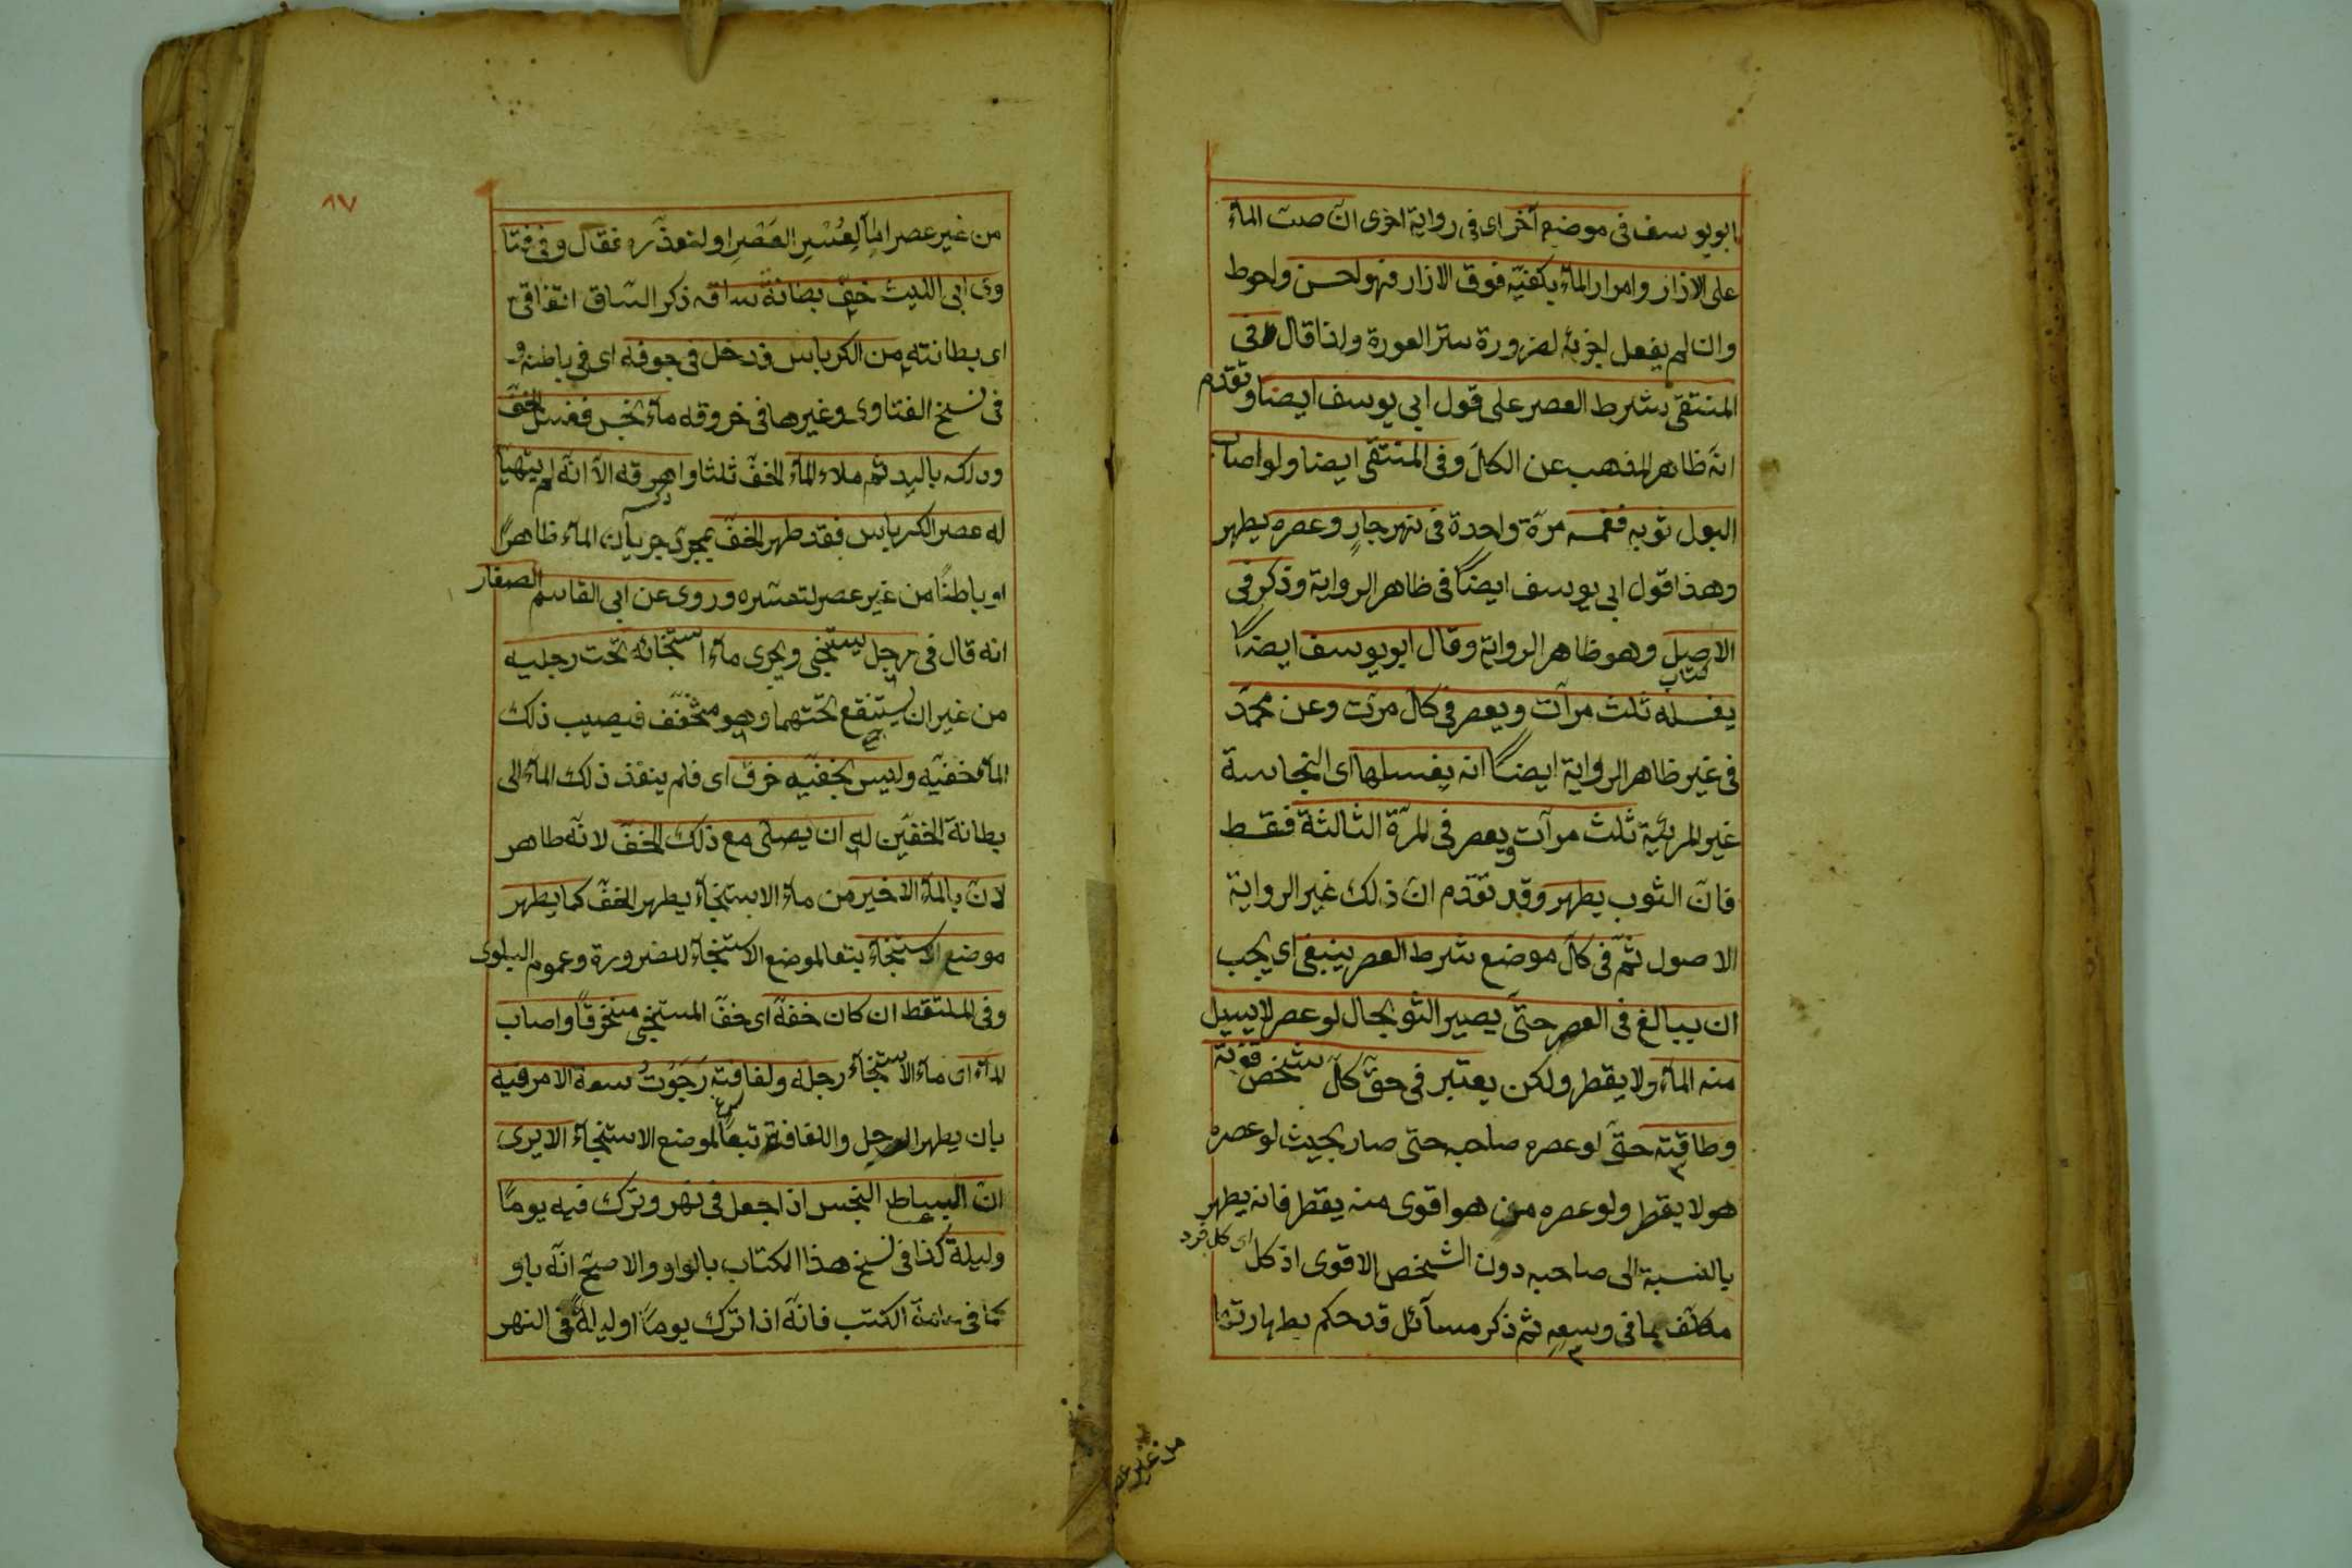 ابويوسف فى موضع آخر اى فى رواية اخرى ان صبّ الماء
على الازار وامرار الماء بكفيّه فوق الازار فهو احسن واحوط
وان لم يفعل اجزئه لضرورة ستر العورة ولذا قال وفى
المنتقى شرط العصر على قول ابى يوسف ايضا وتقدم
انّه ظاهر المذهب عن الكلّ وفى المنتقى ايضا ولو اصاب
البول ثوبه فغمسه مرّة واحدة فى نهر جارٍ وعصره يطهر
وهذا قول ابى يوسف ايضاً فى ظاهر الرواية وذكر فى
الاصل وهو ظاهر الرواية وقال ابويوسف ايضاً
كتاب
يغسله ثلث مرآت ويعصر فى كلّ مرّت وعن محمّد
فى غير ظاهر الرواية ايضاً انه يغسلها اى النجاسة
غير المرئيّة ثلث مرآت ويعصر فى المرّة الثالثة فقط
فانّ الثوب يطهر وقد تقدّم انّ ذلك غير الرواية
الاصول ثمّ فى كلّ موضع شرط العصر ينبغى اى يجب
ان يبالغ فى العصر حتّى يصير الثو بحال لو عصر لا يسيل
منه الماء ولا يقطر ولكن يعتبر فى حقّ كلّ شخص قوّته
وطاقته حتّى لو عصره صاحبه حتى صار بحيث لو عصره
هو لا يقطر ولو عصره من هو اقوى منه يقطر فانه يطهر
بالنسبة الى صاحبه دون الشخص الاقوى اذ كل
اى كل فرد
مكلّف بما فى وسعه ثم ذكر مسائل قد حكم بطهارتها
من غير عصر
٨٧
من غير عصر امّا لِعُسْرِ العَصْرِ او لتعذّره فقال وفى فتا
وى ابى الليث خفّ بطانةُ ساقه ذكر الساق اتفاقىّ
اى بطانته من الكرباس فدخل فى جوفه اى فى باطنه و
فى نسخ الفتاوى وغيرها فى خروقه ماء نجس فغسل الخفّ
ودلكه باليد ثم ملاء الماء الخفّ ثلثا واهرقه الاّ انّه لم يتهيّأ
له عصر الكرباس فقد طهر الخفّ بمجرّد جريان الماء ظاهراً
او باطناً من غير عصر لتعسّره وروى عن ابى القاسم الصفار
انه قال فى رجل يستنجى ويجرى ماء استنجائه تحت رجليه
من غير ان يستنقع تحتهما وهو متخفّف فيصيب ذلك
الماء خفيّه وليس بخفيّه خرق اى فلم ينفذ ذلك الماء الى
بطانة الخفيّن له ان يصلّى مع ذلك الخفّ لانّه طاهر
لانّ بالماء الاخير من ماء الاستنجاء يطهر الخفّ كما يطهر
موضع الاستنجاء بتعا لموضع الاستنجاء للضرورة وعموم البلوى
وفى الملتقط ان كان خفّه اى خفّ المستنجى منخرقاً واصاب
الماء اى ماء الاستنجاء رجله ولفافته رَجَوْتُ سعة الامر فيه
بان يطهر الرجل واللفافة تبعاً لموضع الاستنجاء الا يرى
انّ البساط النجس اذا جعل فى نهر وترك فيه يوماً
وليلةً كذا فى نسخ هذا الكتاب بالواو والاصحّ انّه باو
كما فى عامّة الكتب فانّه اذا ترك يوماً او ليلةً فى النهر